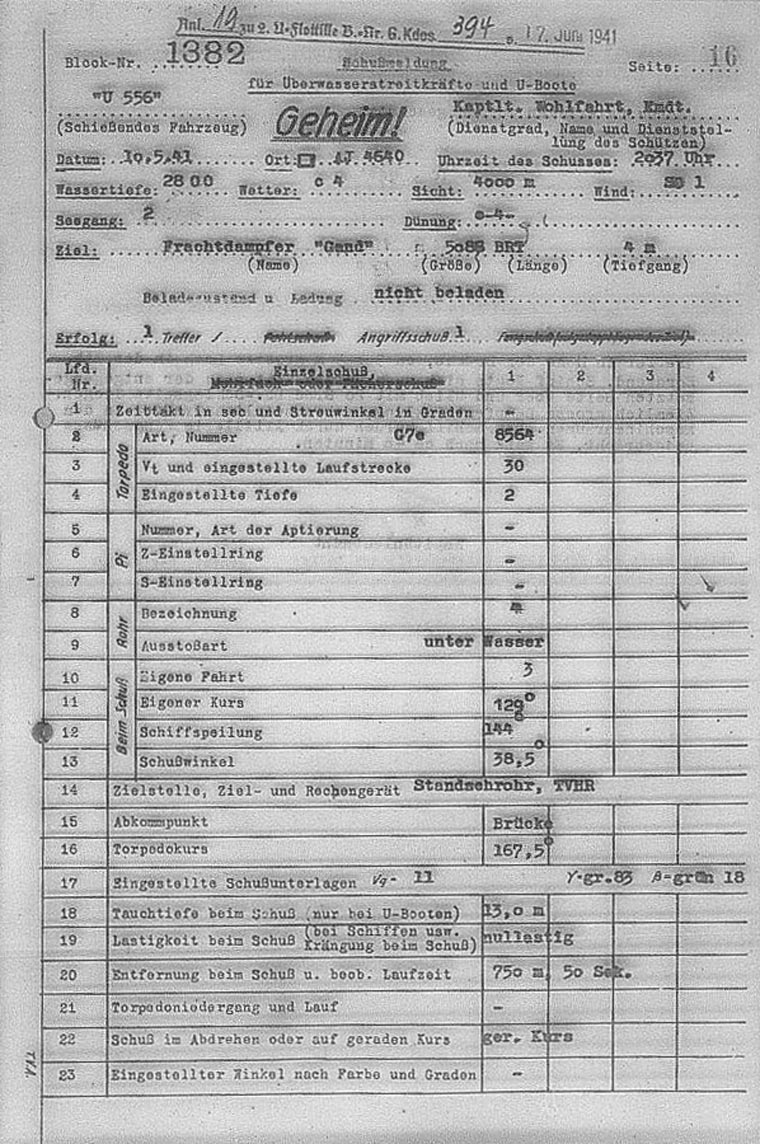 Anl. 19 zu 2. U-Flottille B.-Nr. G. Kdos. 394 v. 17. Juni 1941
Block-Nr. 1382 Schußmeldung Seite: 16
für Überwasserstreitkräfte und U-Boote
"U 556" Geheim! Kaptlt. Wohlfahrt, Kmdt.
(Schießendes Fahrzeug) (Dienstgrad, Name und Dienststel-
lung des Schützen)
Datum: 10.5.41 Ort: AJ 4640 Uhrzeit des Schusses: 2037 Uhr
Wassertiefe: 2800 Wetter: c 4 Sicht: 4000 m Wind: SO 1
Seegang: 2 Dünung: 0-4-
Ziel: Frachtdampfer "Gand" 5088 BRT 4 m
(Name) (Größe) (Länge) (Tiefgang)
Beladezustand u Ladung nicht beladen
Erfolg: 1 Treffer / Angriffsschuß 1
Lfd. Nr. Einzelschuß, 1 2 3 4
1 Zeittakt in sec und Streuwinkel in Graden -
Torpedo
2 Art, Nummer G7e 8564
3 Vt und eingestellte Laufstrecke 30
4 Eingestellte Tiefe 2
Pi
5 Nummer, Art der Aptierung -
6 Z-Einstellring -
7 S-Einstellring -
Rohr
8 Bezeichnung 4
9 Ausstoßart unter Wasser
Beim Schuß
10 Eigene Fahrt 3
11 Eigener Kurs 129°
12 Schiffspeilung 144°
13 Schußwinkel 38,5°
14 Zielstelle, Ziel- und Rechengerät Standsehrohr, TVHR
15 Abkommpunkt Brücke
16 Torpedokurs 167,5°
17 Eingestellte Schußunterlagen Vg- 11 γ-gr.83 β=grün 18
18 Tauchtiefe beim Schuß (nur bei U-Booten) 13,0 m
19 Lastigkeit beim Schuß (bei Schiffen usw. Krängung beim Schuß) nullastig
20 Entfernung beim Schuß u. beob. Laufzeit 750 m, 50 Sek.
21 Torpedoniedergang und Lauf -
22 Schuß im Abdrehen oder auf geraden Kurs ger. Kurs
23 Eingestellter Winkel nach Farbe und Graden -